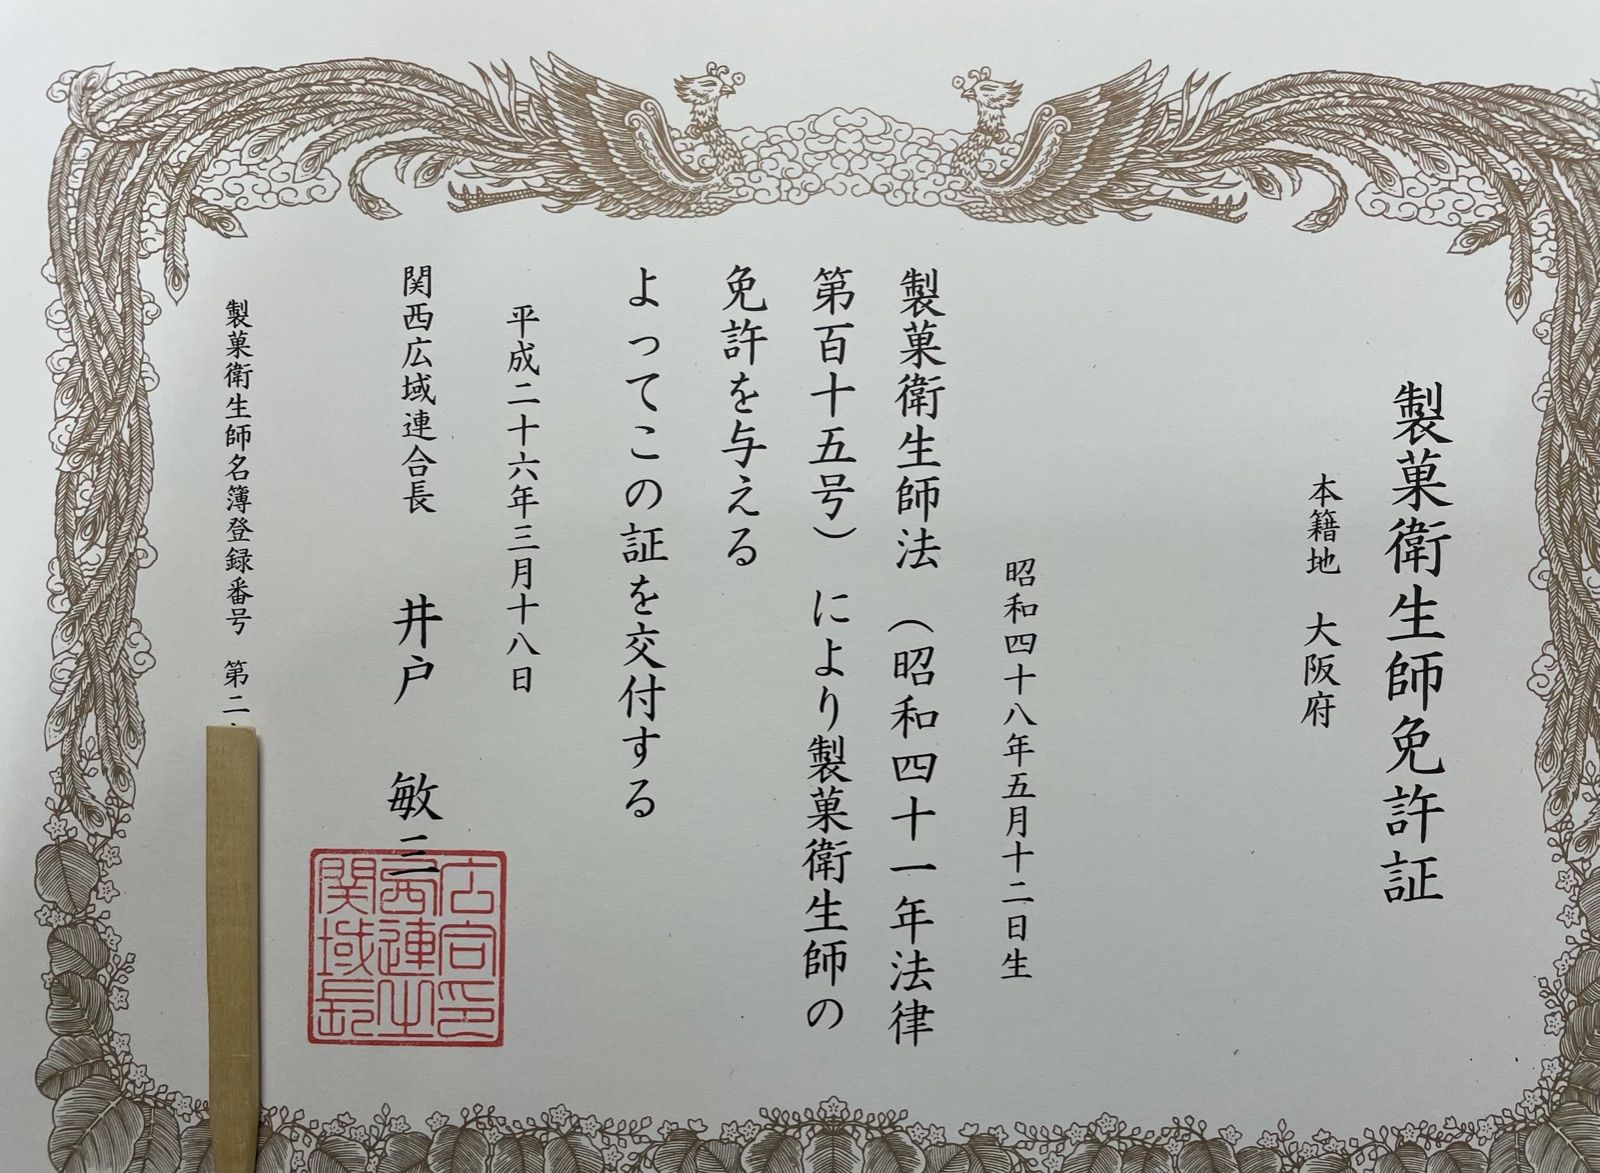 製菓衛生師免許証
本籍地 大阪府
昭和四十八年五月十二日生
製菓衛生師法(昭和四十一年法律
第百十五号)により製菓衛生師の
免許を与える
よってこの証を交付する
平成二十六年三月十八日
関西広域連合長 井戸 敏三
製菓衛生師名簿登録番号 第二
関西広域連合長之印